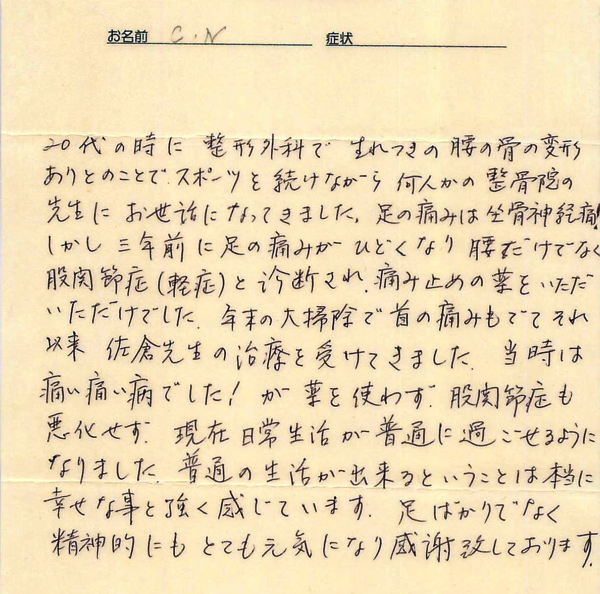 お名前 C.N 症状
20代の時に 整形外科で 生れつきの 腰の骨の変形
ありとのことで.スポーツを続けながら 何人かの整骨院の
先生に お世話になってきました。足の痛みは坐骨神経痛!
しかし 三年前に足の痛みが ひどくなり 腰だけでなく
股関節症(軽症)と診断され.痛み止めの薬をいただ
いただけでした. 年末の大掃除で首の痛みもでて それ
以来 佐倉先生の治療を受けてきました. 当時は
痛い痛い病でした! が 薬を使わず. 股関節症も
悪化せず. 現在 日常生活が普通に過ごせるように
なりました. 普通の生活が出来るということは本当に
幸せな事と強く感じています. 足ばかりでなく
精神的にも とても元気になり感謝致しております.